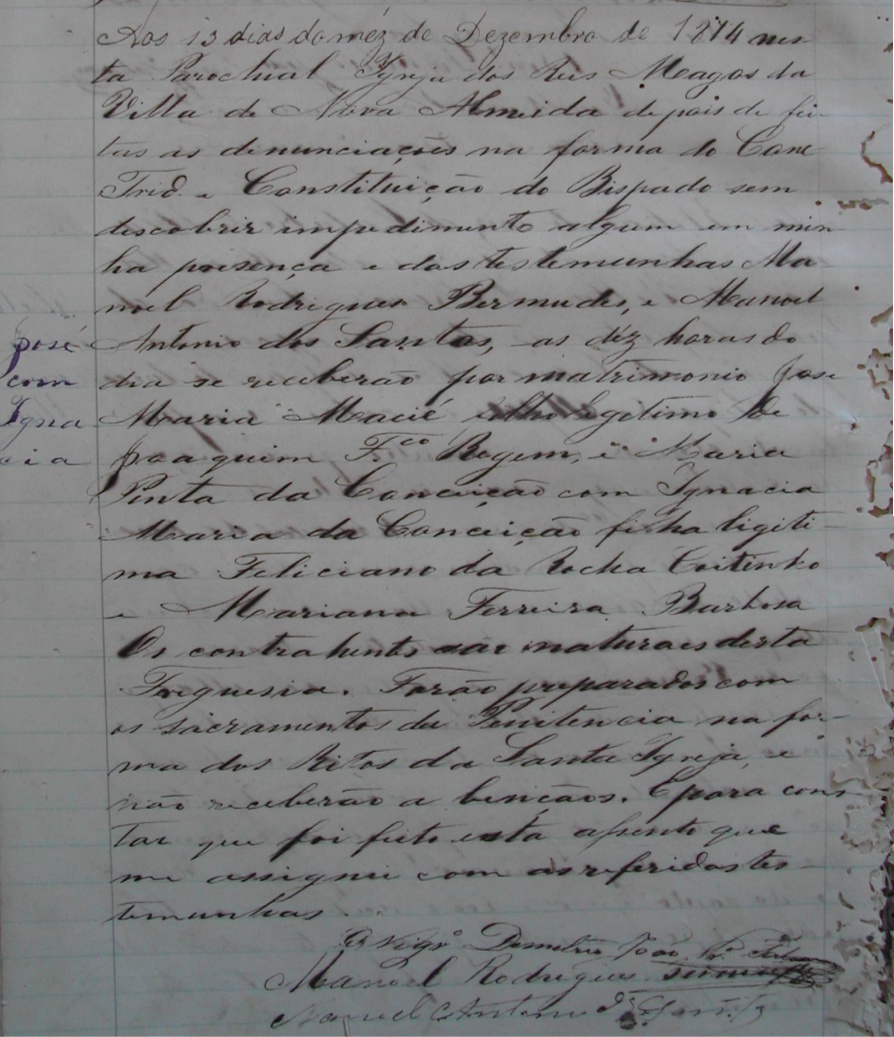 Aos 13 dias do méz de Dezembro de 1874 nes
ta Parochial Ygreja dos Reis Meagos da
Villa de Nova Almeida depois de fei
tas as denunciações na forma do Conc
Trid. e Constituição do Bispado sem
descobrir impedimento algum em min
ha presença e das testemunhas Ma
noel Rodrigues Bermudes, e Manoel
Antonio dos Santos, as déz horas do
dia se receberão por matrimonio José
Maria Macié filho legitimo de
Joaquim F.co Rogem, e Maria
Pinta da Conceição com Ignacia
Maria da Conceição filha ligiti-
ma Feliciano da Rocha Coitinho
e Mariana Ferreira Barbosa
Os contrahentes sao naturaes desta
Freguesia. Forão preparados com
os sacramentos da Penitencia na for-
ma dos Ritos da Santa Igreja, e
não receberão a bençãos. E para cons
tar que foi feito esta assento que
me assignei com as referidas tes-
temunhas.
José
com
Igna
cia
O Vigr.o Demetrio João
Manoel Rodrigues
Manoel Antonio dos Santos